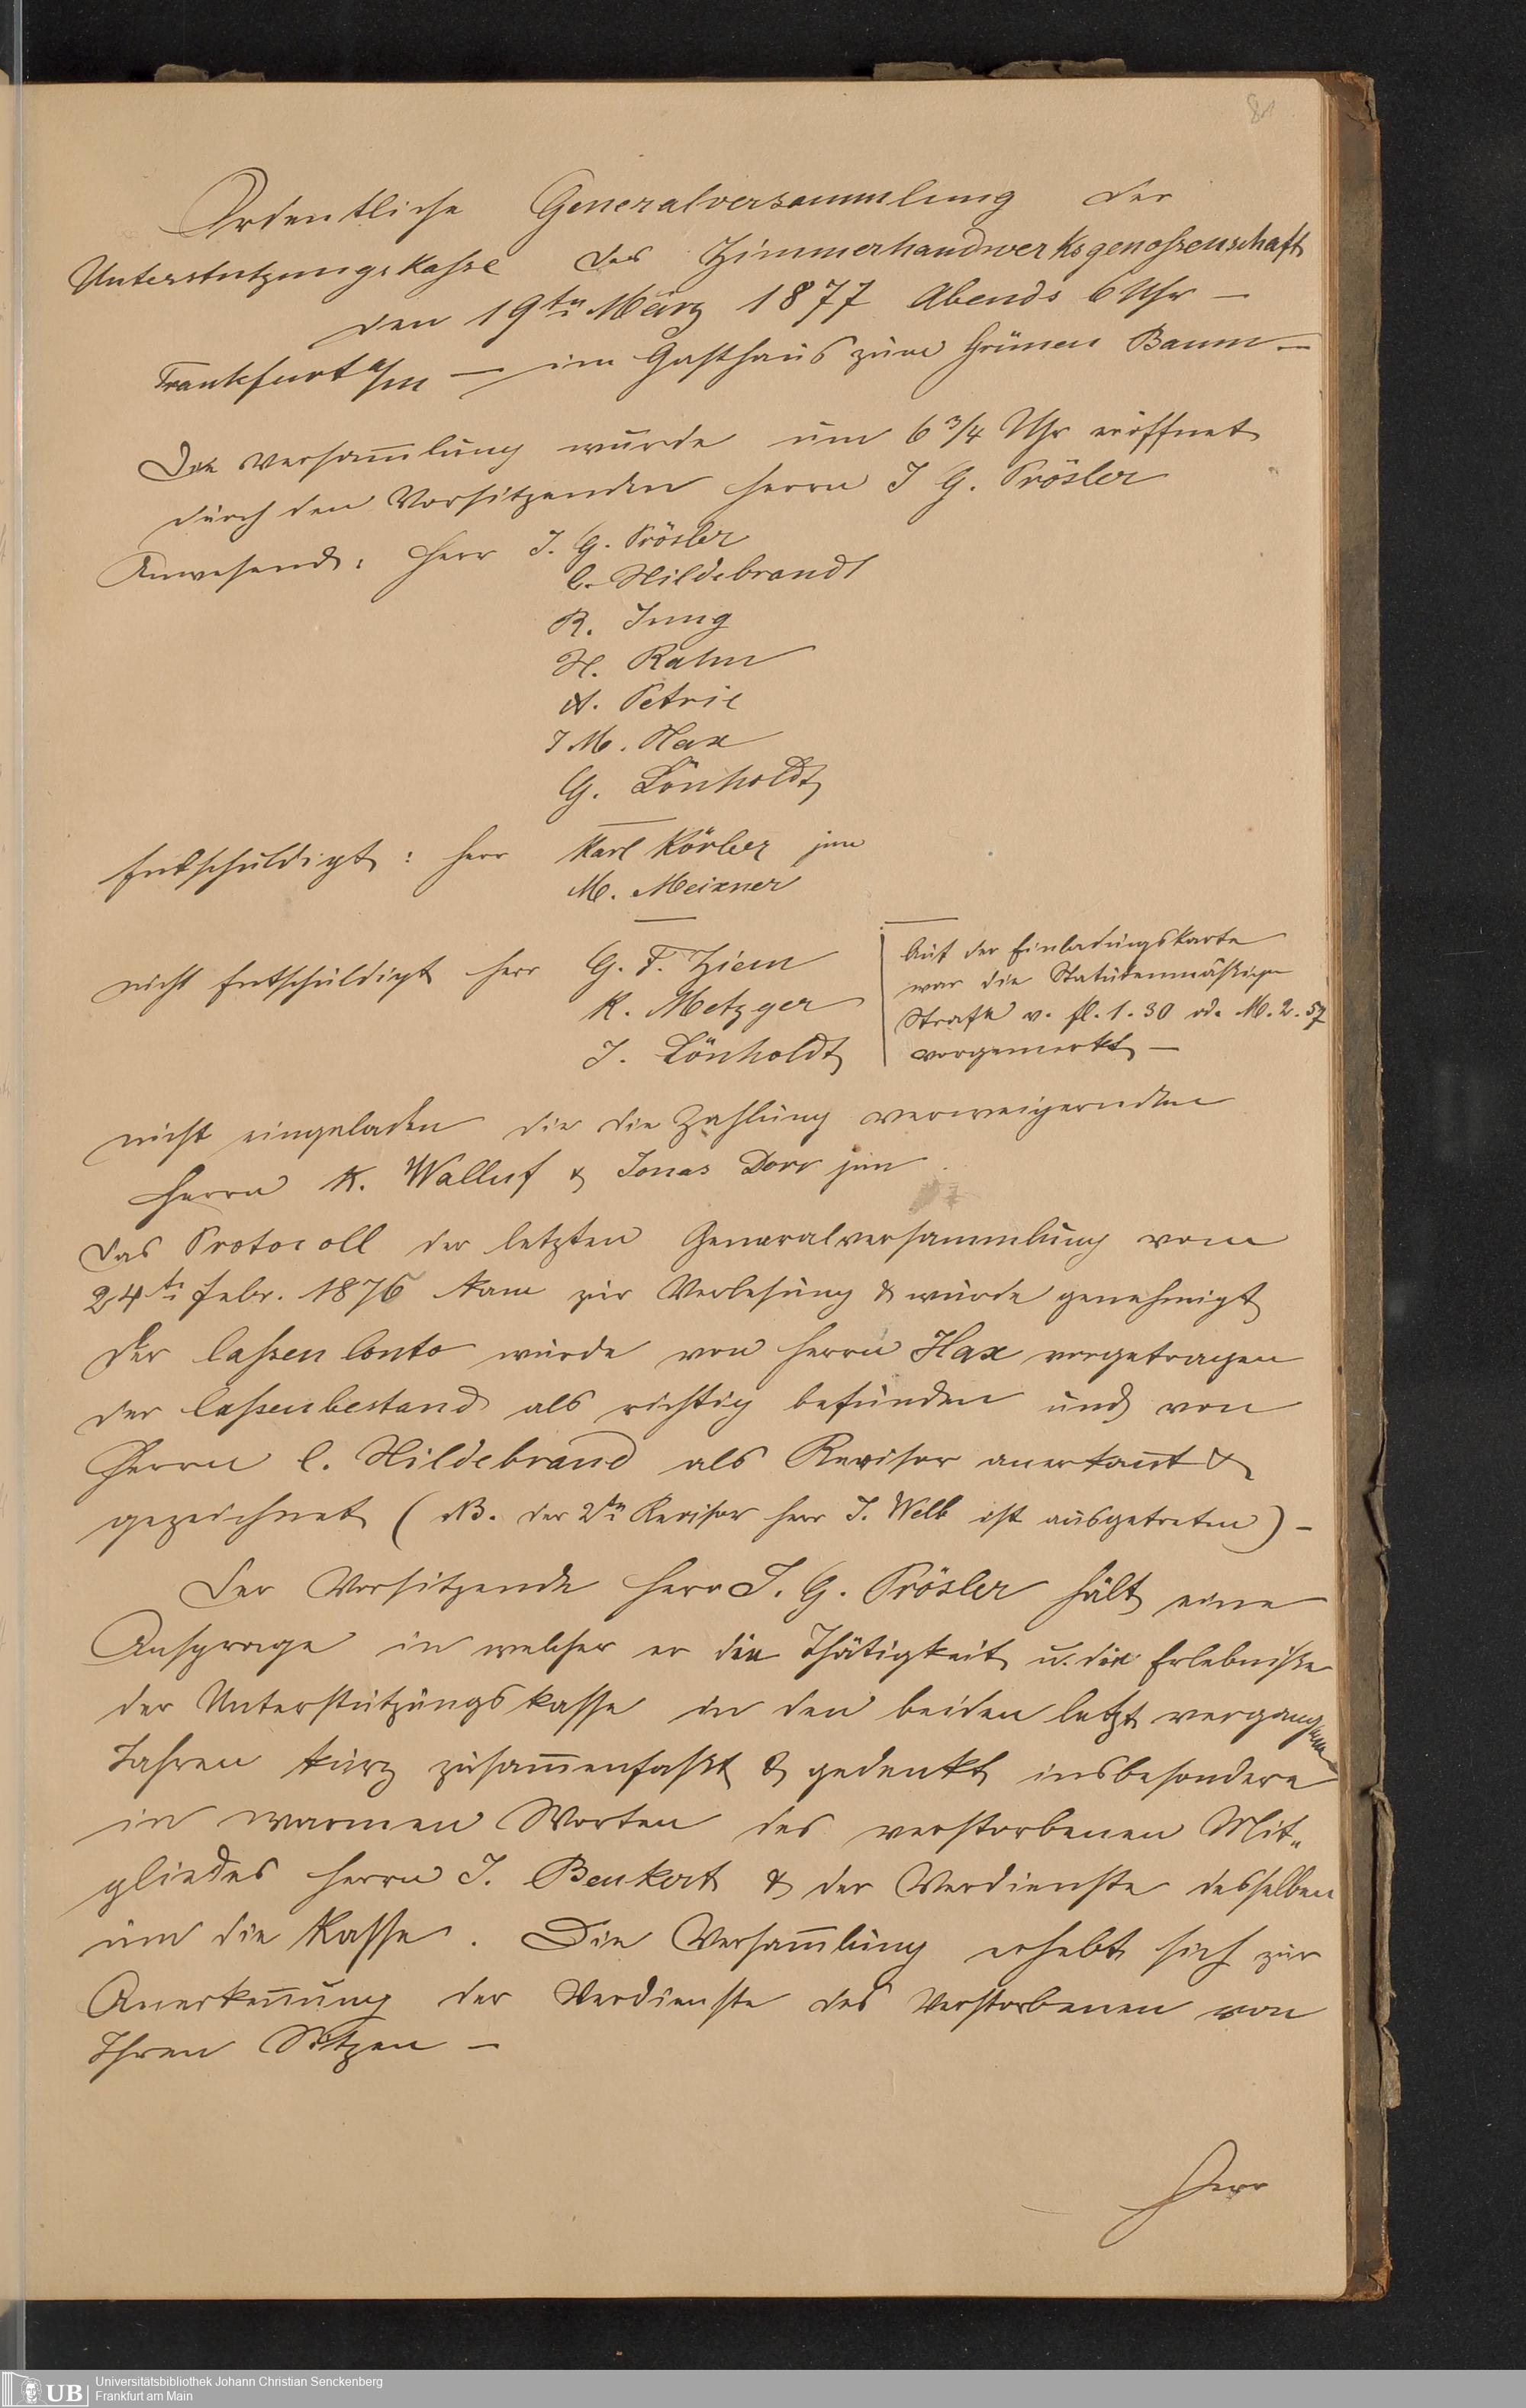 Ordentliche Generalversammlung der
Unterstützungskasse des Zimmerhandwerksgenossenschaft
den 19ten März 1877 Abends 6 Uhr —
Frankfurt a/m — im Gasthaus zum Grünen Baum —
Die Versam̄lung wurde um 6 3/4 Uhr eröffnet
durch den Vorsitzenden Herrn J G. Prösler
Anwesend: Herr J. G. Prösler
C. Hildebrandt
R. Jung
H. Rahn
A. Petrie
J M. Hax
G. Lönholdt
Entschuldigt: Herr Karl Körber jun
M. Meixner
nicht Entschuldigt Herr G. F. Ziem
K. Metzger
J. Lönholdt
Auf der Einladungskarte
war die Statutenmäßige
Strafe v. fl. 1.30 od. M. 2.57
vorgemerkt —
nicht eingeladen die die Zahlung verweigernden
Herrn K. Walluf & Jonas Dorr jun.
Das Protocoll der letzten Generalversammlung vom
24ten Febr. 1876 kam zur Verlesung & wurde genehmigt
Der Cassen Conto wurde von Herrn Hax vorgetragen
der Cassenbestand als richtig befunden und von
Herrn C. Hildebrand als Revisor anerkan̄t &
gezeichnet (NB. der 2te Revisor Herr J. Welb ist ausgetreten) —
Der Vorsitzende Herr J. G. Prösler hält eine
Ansprage in welcher er die Thätigkeit u. die Erlebniße
der Unterstützungskasse in den beiden letzt vergangenen
Jahren kurz zusam̄enfaßt & gedenkt insbesondere
in warmen Worten des verstorbenen Mit„
gliedes Herrn J. Benkert & der Verdienste desselben
um die Kasse. Die Versam̄lung erhebt sich zur
Anerken̄ung der Verdienste des Verstorbenen von
Ihren Sitzen —
Herr
UB Universitätsbibliothek Johann Christian Senckenberg
Frankfurt am Main